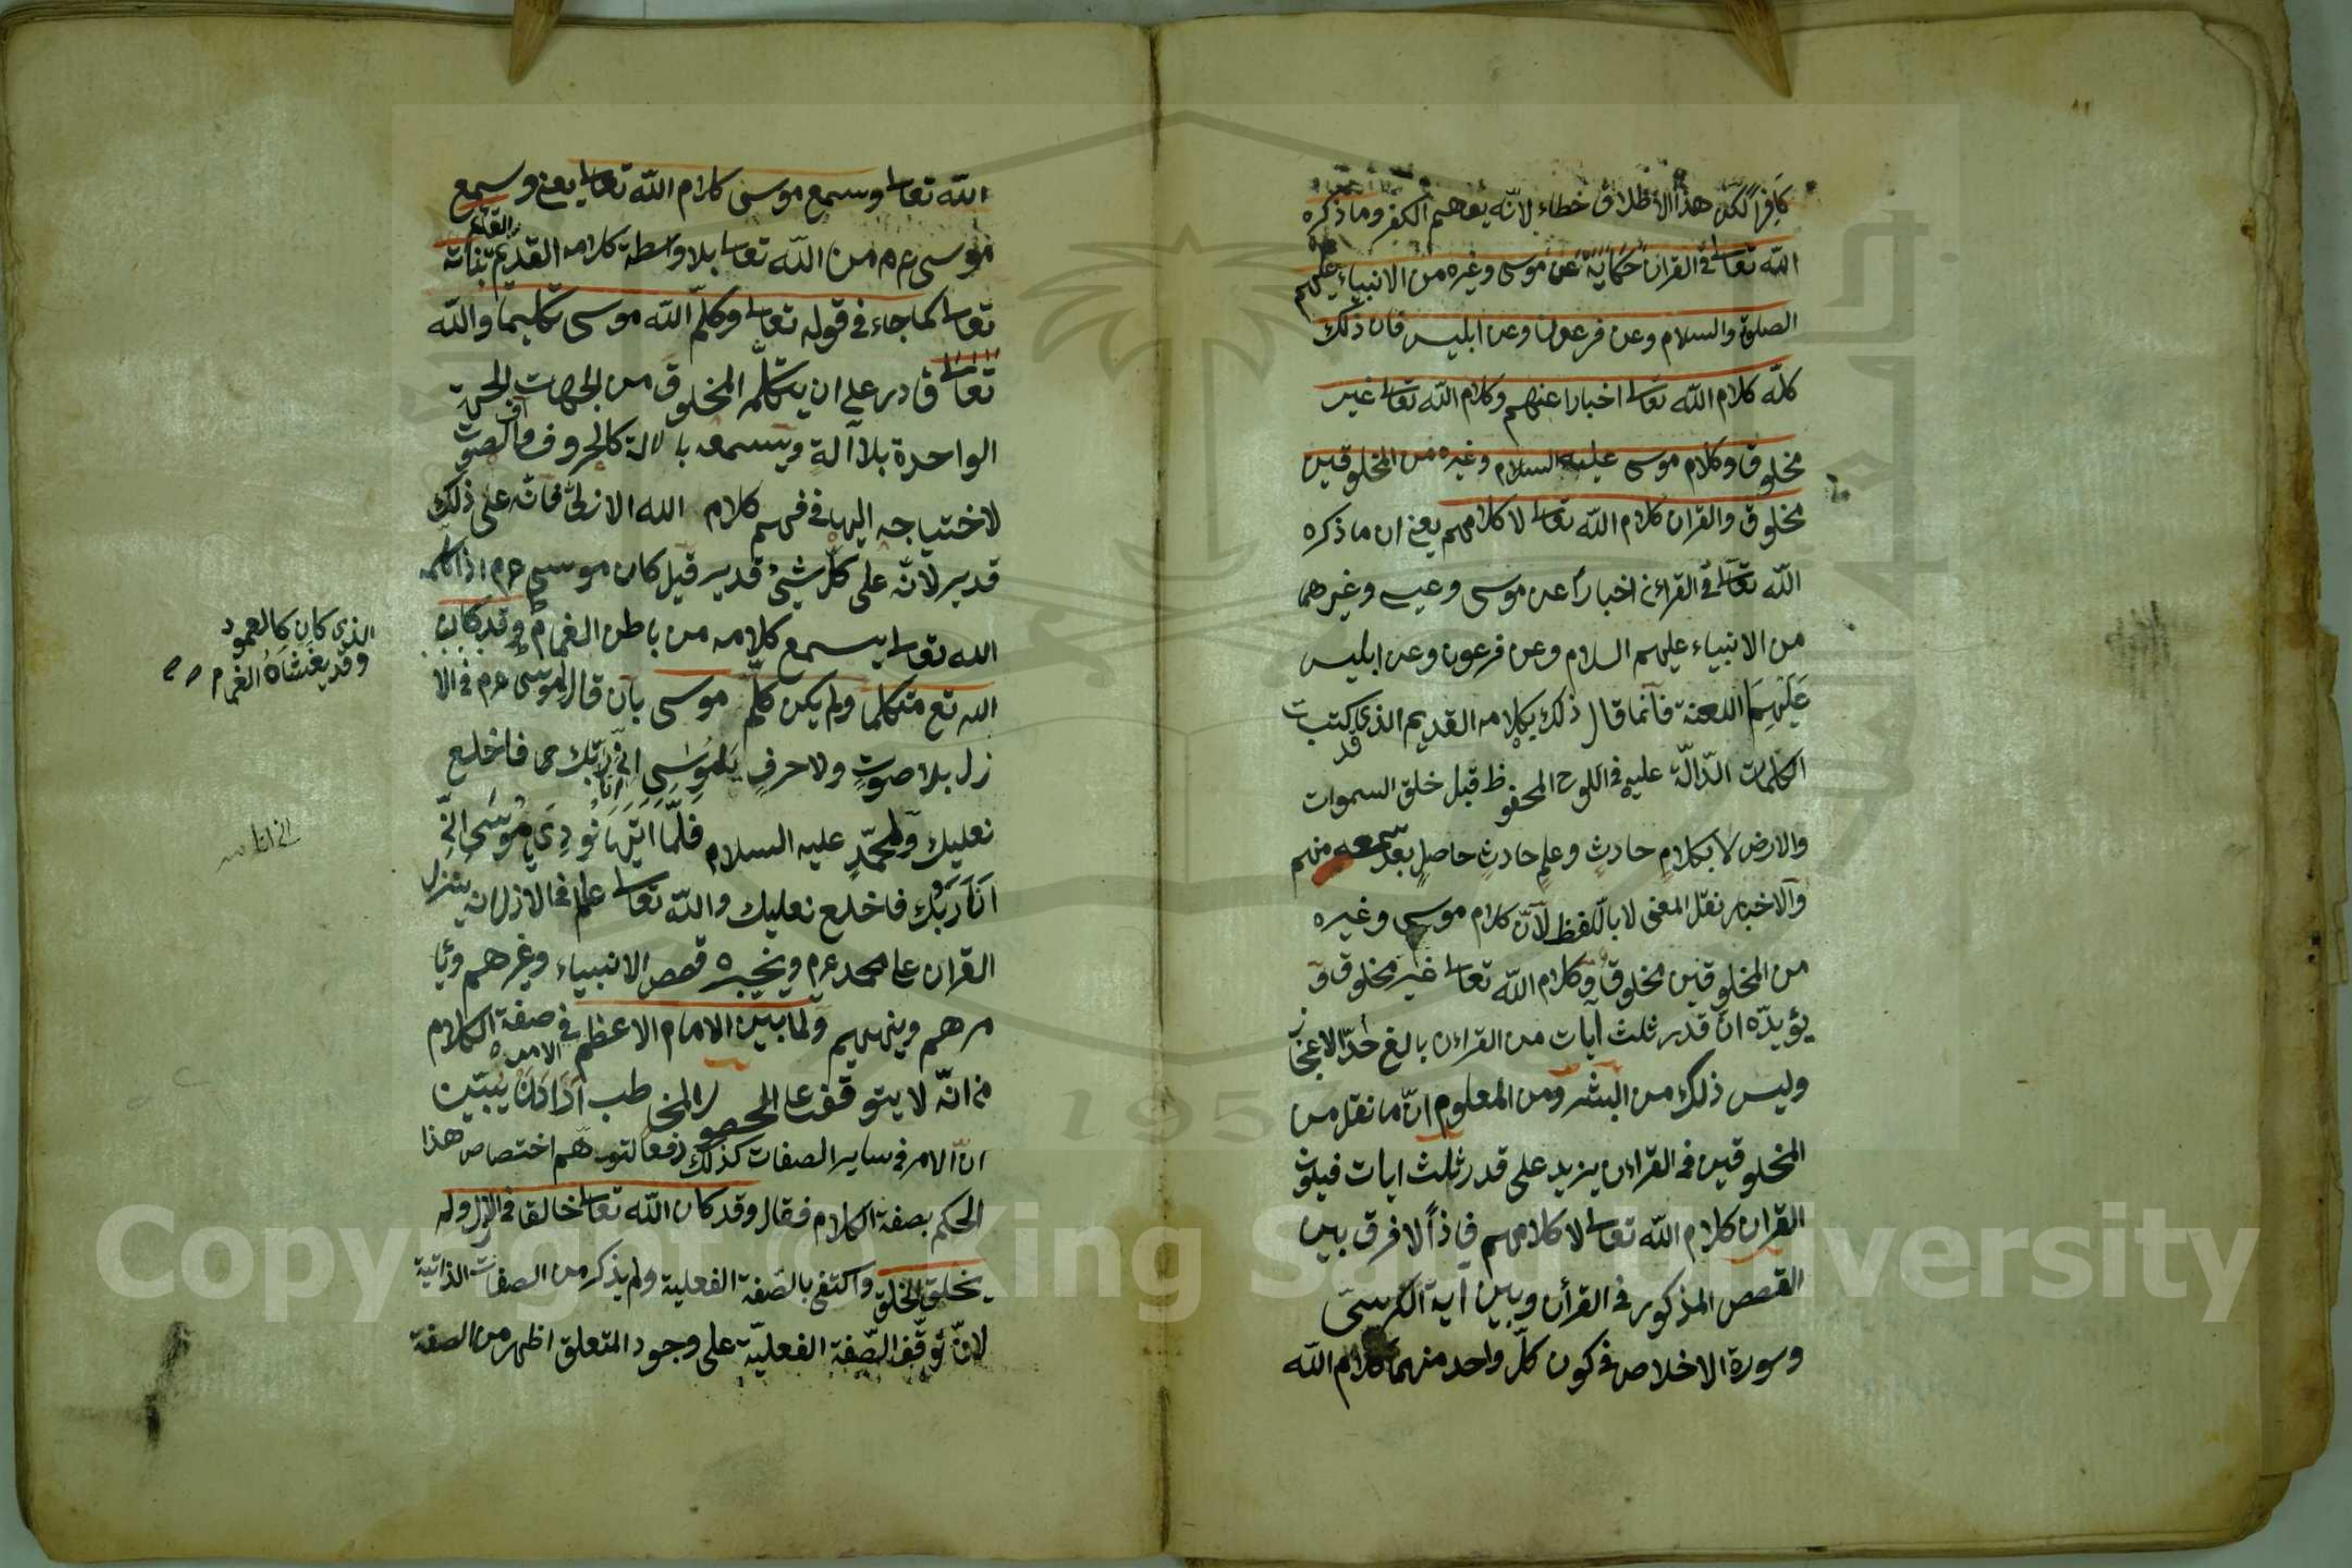 كافرا لكن هذا الاطلاق خطاء لانه يوهم الكفر وما ذكره
الله تعالى في القران حكاية عن موسى وغيره من الانبياء عليهم
الصلوة والسلام وعن فرعون وعن ابليس فان ذلك
كله كلام الله تعالى اخبارا عنهم وكلام الله تعالى غير
مخلوق وكلام موسى عليه السلام وغيره من المخلوقين
مخلوق والقران كلام الله تعالى لا كلامهم يعني ان ما ذكره
الله تعالى في القراءن اخبارا عن موسى وعيسى وغيرهما
من الانبياء عليهم السلام وعن فرعون وعن ابليس
عليهما اللعنة فانما قال ذلك بكلامه القديم الذي كتبت
قد
الكلمات الدّالّة عليه في اللوح المحفوظ قبل خلق السموات
والارض لا بكلامٍ حادثٍ وعلمٍ حادثٍ حاصلٍ بعد سمعه منهم
والاخبار نقل المعنى لا باللفظ لانّ كلام موسى وغيره
من المخلوقين مخلوق وكلام الله تعالى غير مخلوق و
يؤيدّه انّ قدر ثلث آيات من القراءن بالغ حدّ الاعجاز
وليس ذلك من البشر ومن المعلوم انّ ما نقل من
المخلوقين في القراءن يزيد على قدر ثلث ايات فيكون
القران كلام الله تعالى لا كلامهم فاذاً لا فرق بين
القصص المذكور في القرأن وبين آية الكرسى
وسورة الاخلاص في كون كلّ واحد منهما كلام الله
الله تعالى وسمع موسى كلام الله تعالى يعني وسمع
موسى عم من الله تعالى بلا واسطة كلامه القديم القائم بذاته
تعالى كما جاء في قوله تعالى وكلّم الله موسى تكليما والله
تعالى قادر على ان يتكلّم المخلوق من الجهات الجهة
الواحدة بلا آلة ويسمعه بالالة كالحروف والصوت
لاحتياجه اليها في فهم كلام الله الازلىّ فانّه على ذلك
قدير لانّه على كلّ شيئ قدير قيل كان موسى عم اذا كلمه
الله تعالى يسمع كلامه من باطن الغمام وقد كان
الله تع متكلما ولم يكن كلّم موسى بان قال لموسى عم في الا
زل بلا صوتٍ ولا حرفٍ يا موسى انّى انا ربّك فاخلع
نعليك ولمحمّدٍ عليه السلام فلمّا اتيها نودى يا موسى انّى
انا ربّك فاخلع نعليك والله تعالى علم في الازل انه ينزل
القران على محمد عم ويخبره قصص الانبياء وغيرهم ويا
مرهم وينهيهم ولما بين الامام الاعظم في صفة الكلام
من انّه لا يتوقف على الحضور المخاطب اراد ان يبيّن
انّ الامر في ساير الصفات كذلك دفعا لتوهّم اختصاص هذا
الحكم بصفة الكلام فقال وقد كان الله تعالى خالقا في الازل ولم
يخلق الخلق واكتفى بالصّفة الفعلية ولم يذكر من الصفات الذاتية
لانّ توقّف الصّفة الفعليّة على وجود المتعلق اظهر من الصفة
الذى كان كالعمود
وقد يغشاه الغمام
Copyright © King Saud University
195